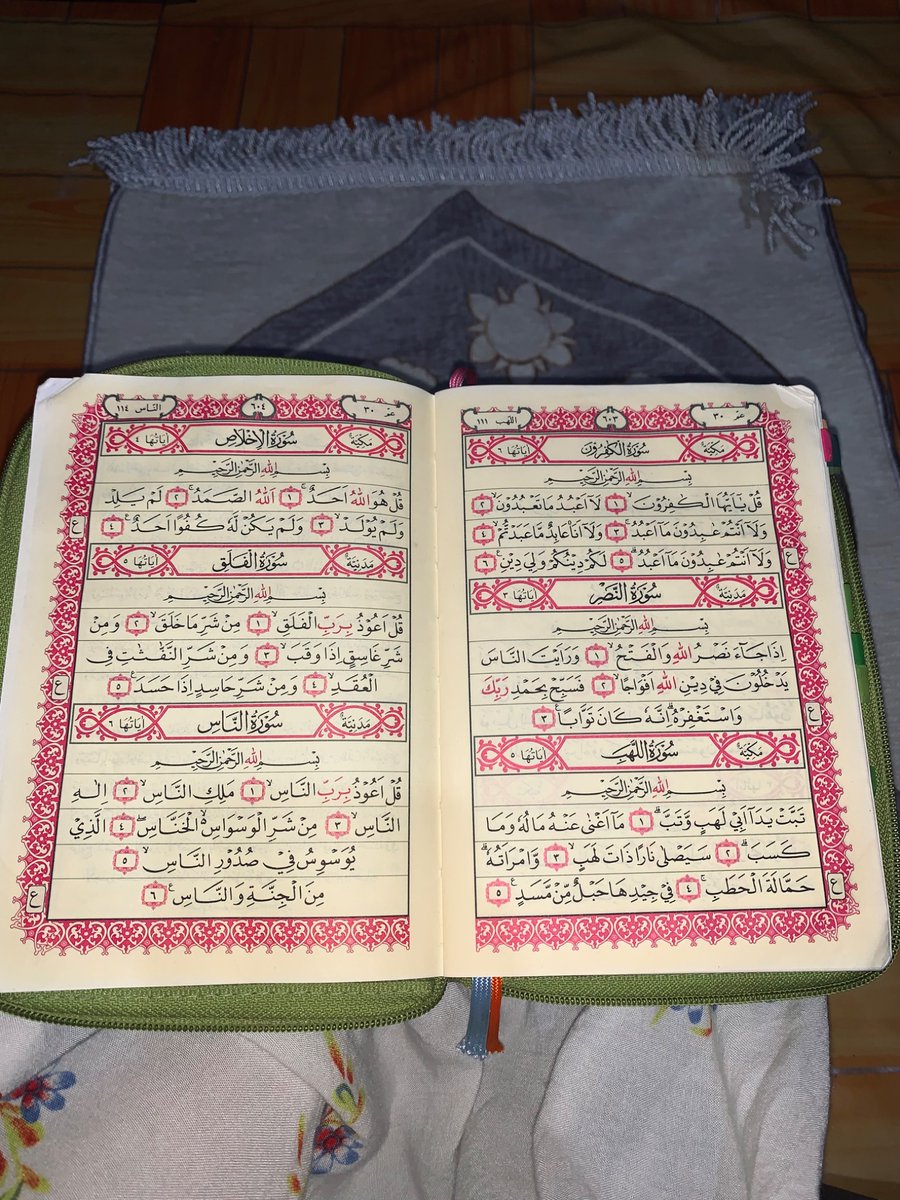 جزء ٣٠
٦٠٣
اللهب ١١١
مكية سورة الكفرون اياتها ٦
بِسْمِ اللهِ الرَّحْمٰنِ الرَّحِيْمِ
قُلْ يٰٓاَيُّهَا الْكٰفِرُوْنَۙ ١ لَآ اَعْبُدُ مَا تَعْبُدُوْنَۙ ٢
وَلَآ اَنْتُمْ عٰبِدُوْنَ مَآ اَعْبُدُۚ ٣ وَلَآ اَنَا۠ عَابِدٌ مَّا عَبَدْتُّمْۙ ٤
وَلَآ اَنْتُمْ عٰبِدُوْنَ مَآ اَعْبُدُۗ ٥ لَكُمْ دِيْنُكُمْ وَلِيَ دِيْنِ ࣖ ٦
ع
مدنية سورة النصر اياتها ٣
بِسْمِ اللهِ الرَّحْمٰنِ الرَّحِيْمِ
اِذَا جَآءَ نَصْرُ اللهِ وَالْفَتْحُۙ ١ وَرَاَيْتَ النَّاسَ
يَدْخُلُوْنَ فِيْ دِيْنِ اللهِ اَفْوَاجًاۙ ٢ فَسَبِّحْ بِحَمْدِ رَبِّكَ
وَاسْتَغْفِرْهُۗ اِنَّهٗ كَانَ تَوَّابًا ࣖ ٣
ع
مكية سورة اللهب اياتها ٥
بِسْمِ اللهِ الرَّحْمٰنِ الرَّحِيْمِ
تَبَّتْ يَدَآ اَبِيْ لَهَبٍ وَّتَبَّۗ ١ مَآ اَغْنٰى عَنْهُ مَالُهٗ وَمَا
كَسَبَۗ ٢ سَيَصْلٰى نَارًا ذَاتَ لَهَبٍۙ ٣ وَّامْرَاَتُهٗۗ
حَمَّالَةَ الْحَطَبِۚ ٤ فِيْ جِيْدِهَا حَبْلٌ مِّنْ مَّسَدٍ ࣖ ٥
ع
جزء ٣٠
٦٠٤
الناس ١١٤
مكية سورة الاخلاص اياتها ٤
بِسْمِ اللهِ الرَّحْمٰنِ الرَّحِيْمِ
قُلْ هُوَ اللهُ اَحَدٌۚ ١ اَللهُ الصَّمَدُۚ ٢ لَمْ يَلِدْ
وَلَمْ يُوْلَدْۙ ٣ وَلَمْ يَكُنْ لَّهٗ كُفُوًا اَحَدٌ ࣖ ٤
ع
مدنية سورة الفلق اياتها ٥
بِسْمِ اللهِ الرَّحْمٰنِ الرَّحِيْمِ
قُلْ اَعُوْذُ بِرَبِّ الْفَلَقِۙ ١ مِنْ شَرِّ مَا خَلَقَۙ ٢ وَمِنْ
شَرِّ غَاسِقٍ اِذَا وَقَبَۙ ٣ وَمِنْ شَرِّ النَّفّٰثٰتِ فِى
الْعُقَدِۙ ٤ وَمِنْ شَرِّ حَاسِدٍ اِذَا حَسَدَ ࣖ ٥
ع
مدنية سورة الناس اياتها ٦
بِسْمِ اللهِ الرَّحْمٰنِ الرَّحِيْمِ
قُلْ اَعُوْذُ بِرَبِّ النَّاسِۙ ١ مَلِكِ النَّاسِۙ ٢ اِلٰهِ
النَّاسِۙ ٣ مِنْ شَرِّ الْوَسْوَاسِ ەۙ الْخَنَّاسِۖ ٤ الَّذِيْ
يُوَسْوِسُ فِيْ صُدُوْرِ النَّاسِۙ ٥
مِنَ الْجِنَّةِ وَالنَّاسِ ࣖ ٦
ع